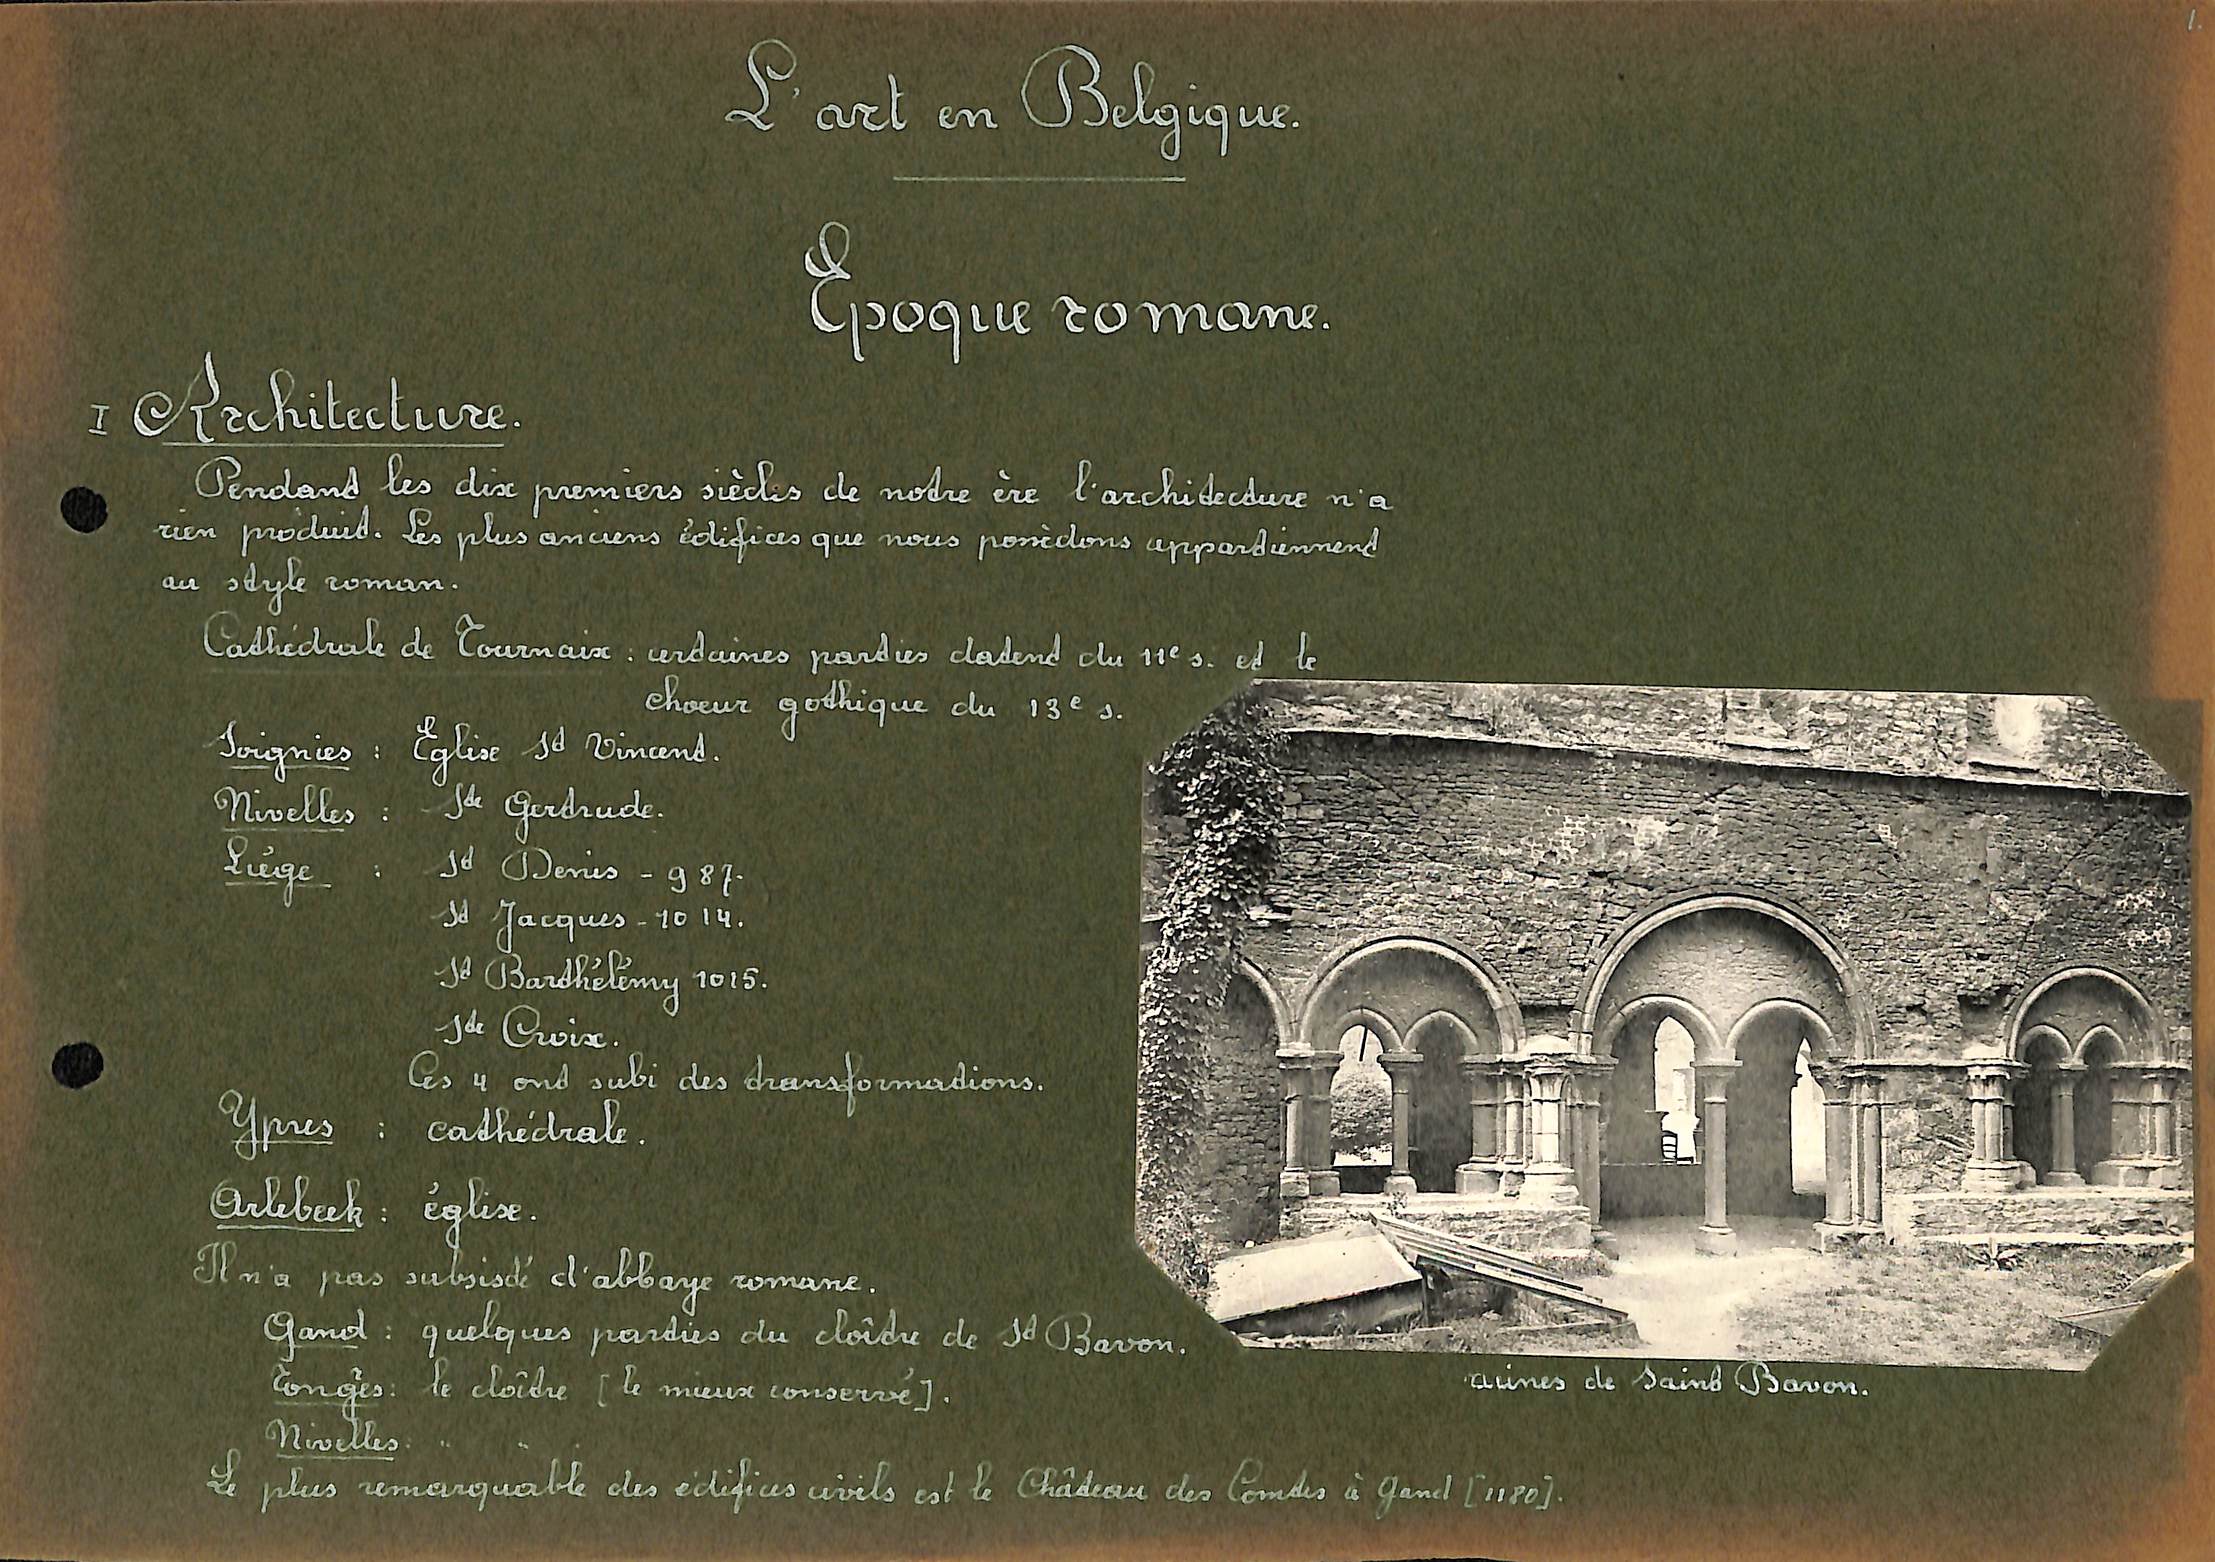 1.
L'art en Belgique.
Epoque romane.
I Architecture.
Pendant les dix premiers siècles de notre ère l'architecture n'a
rien produit. Les plus anciens édifices que nous possèdons appartiennent
au style roman.
Cathédrale de Tournaix : certaines parties datent du 11e s. et le
choeur gothique du 13e s.
Soignies : Eglise St Vincent.
Nivelles : Ste Gertrude.
Liége : St Denis - 987.
St Jacques - 1014.
St Barthélémy 1015.
Ste Croix.
Ces 4 ont subi des transformations.
Ypres : cathédrale.
Arlebeek : église.
Il n'a pas subsisté d'abbaye romane.
Gand : quelques parties du cloître de St Bavon.
Tongrès : le cloître [le mieux conservé].
Nivelles : " " .
Le plus remarquable des édifices civils est le Château des Comtes à Gand [1180].
ruines de Saint Bavon.